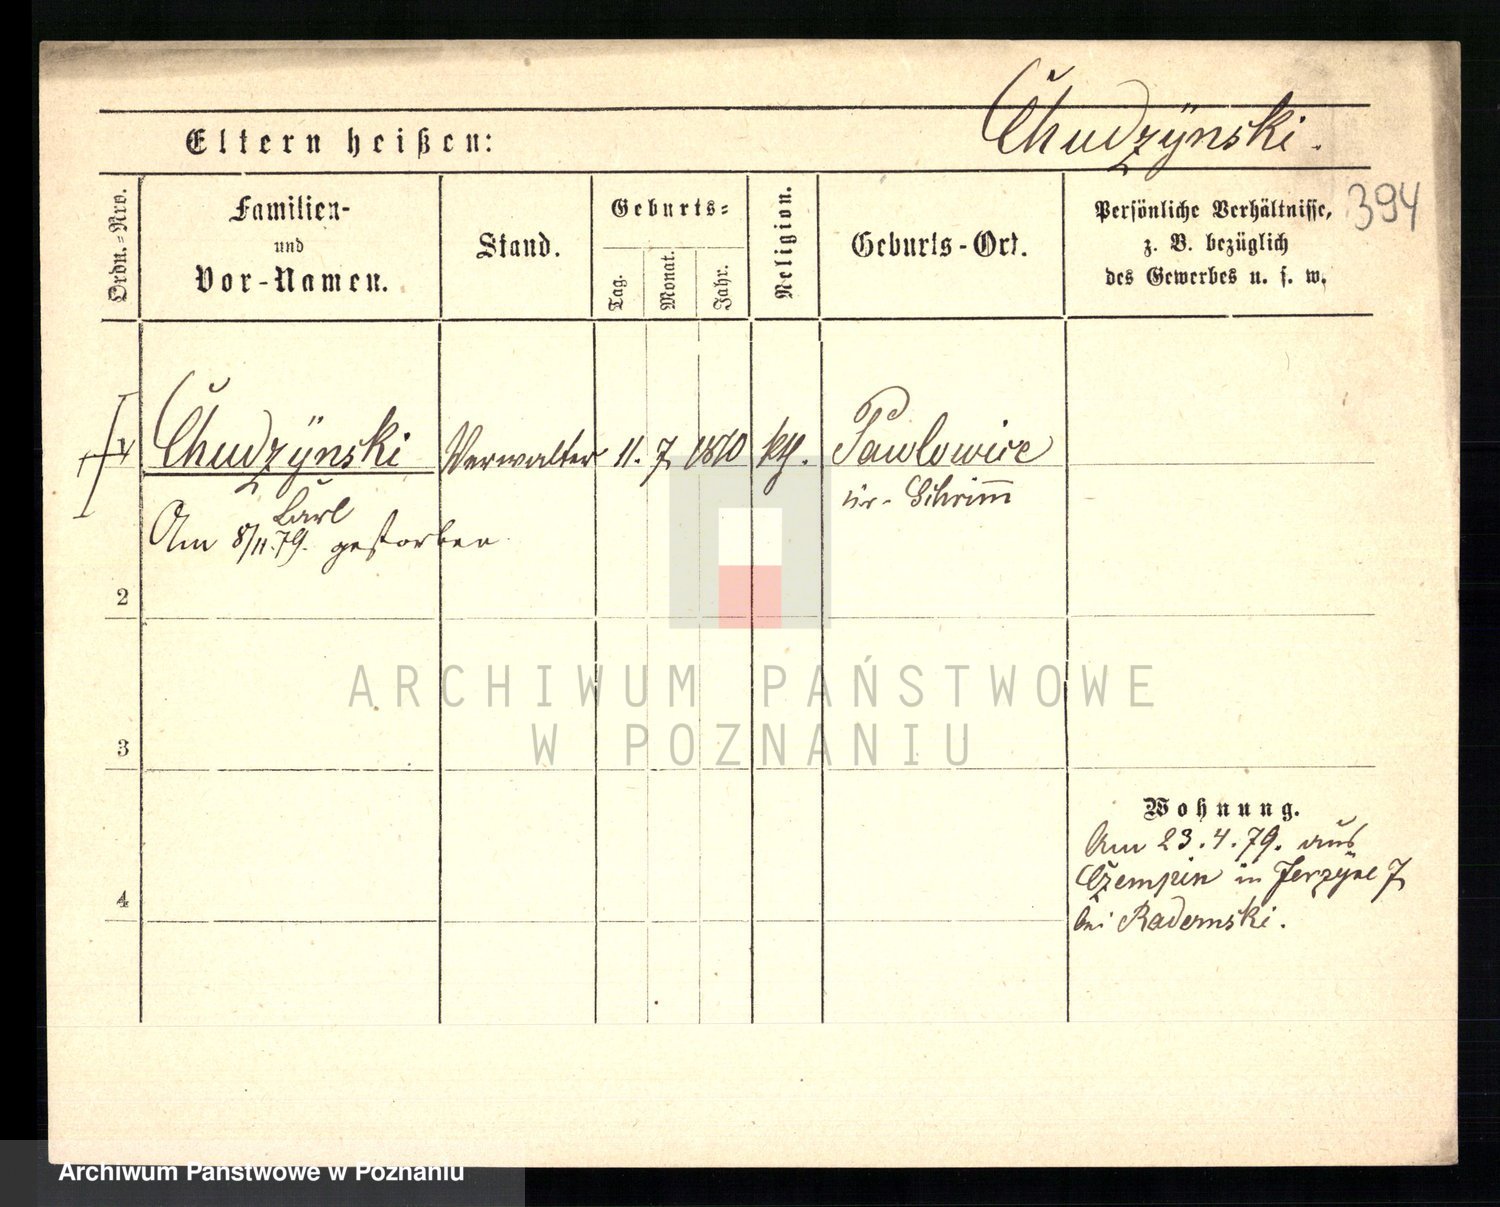 Chudzÿnski.
Eltern heißen:
394
Ordn.-Nro.
Familien-
und
Vor-Namen.
Stand.
Geburts-
Tag.
Monat.
Jahr.
Religion.
Geburts-Ort.
Persönliche Verhältnisse,
z. B. bezüglich
des Gewerbes u. s. w.
Chudzÿnski Verwalter 11. 7 kth. Pawlowice
Carl
Kr. Schrimm
Am 8/11.79. gestorben
2
3
4
Wohnung.
Am 23.4.79. aus
Czempin in Jerzÿce 7
bei Radomski.
ARCHIWUM PAŃSTWOWE
W POZNANIU
Archiwum Państwowe w Poznaniu